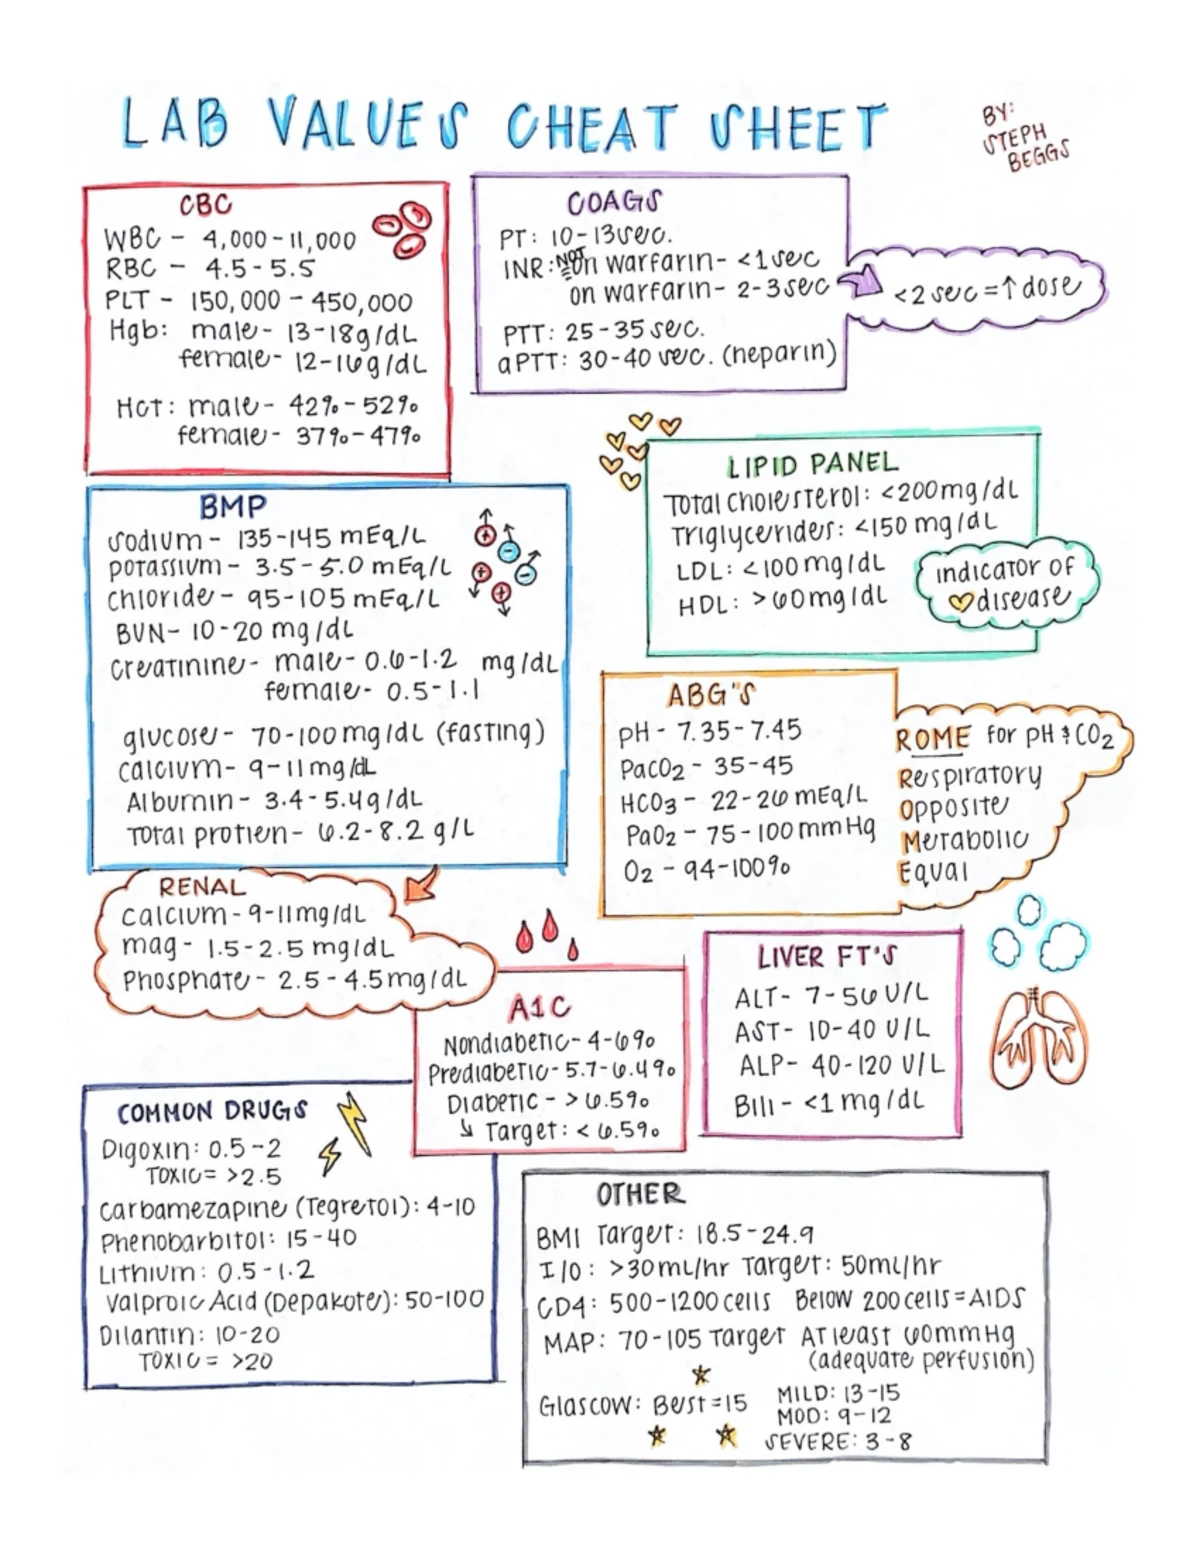 LAB VALUES CHEAT SHEET
BY:
STEPH
BEGGS
CBC
WBC - 4,000-11,000
RBC - 4.5-5.5
PLT - 150,000 - 450,000
Hgb: male- 13-18g/dL
female- 12-16g/dL
Hct: male- 42%-52%
female- 37%-47%
COAGS
PT: 10-13sec.
INR: NOT on warfarin- <1sec
on warfarin- 2-3sec
<2 sec=↑dose
PTT: 25-35 sec.
aPTT: 30-40 sec. (heparin)
LIPID PANEL
Total cholesterol: <200mg/dL
Triglycerides: <150 mg/dL
LDL: <100mg/dL
HDL: >60mg/dL
indicator of
disease
BMP
sodium- 135-145 mEq/L
potassium- 3.5-5.0 mEq/L
chloride- 95-105mEq/L
BUN- 10-20 mg/dL
creatinine- male- 0.6-1.2 mg/dL
female- 0.5-1.1
glucose- 70-100mg/dL (fasting)
calcium- 9-11mg/dL
Albumin- 3.4-5.4g/dL
Total protien- 6.2-8.2 g/L
ABG'S
pH- 7.35-7.45
PaCO2- 35-45
HCO3- 22-26 mEq/L
PaO2- 75-100mmHg
O2 -94-100%
ROME for pH & CO2
Respiratory
Opposite
Metabolic
Equal
RENAL
calcium-9-11mg/dL
mag- 1.5-2.5 mg/dL
Phosphate- 2.5-4.5mg/dL
A1C
Nondiabetic-4-6%
Prediabetic-5.7-6.4%
Diabetic - >6.5%
↳ Target: <6.5%
LIVER FT'S
ALT- 7-56 U/L
AST- 10-40 U/L
ALP- 40-120 U/L
Bili- <1mg/dL
COMMON DRUGS
Digoxin: 0.5-2
TOXIC= >2.5
carbamezapine (Tegretol): 4-10
Phenobarbitol: 15-40
Lithium: 0.5-1.2
Valproic Acid (Depakote): 50-100
Dilantin: 10-20
TOXIC= >20
OTHER
BMI Target: 18.5-24.9
I/O: >30mL/hr Target: 50ml/hr
CD4: 500-1200cells Below 200cells=AIDS
MAP: 70-105 Target At least 60mmHg
(adequate perfusion)
Glascow: Best=15 MILD: 13-15
MOD: 9-12
SEVERE: 3-8